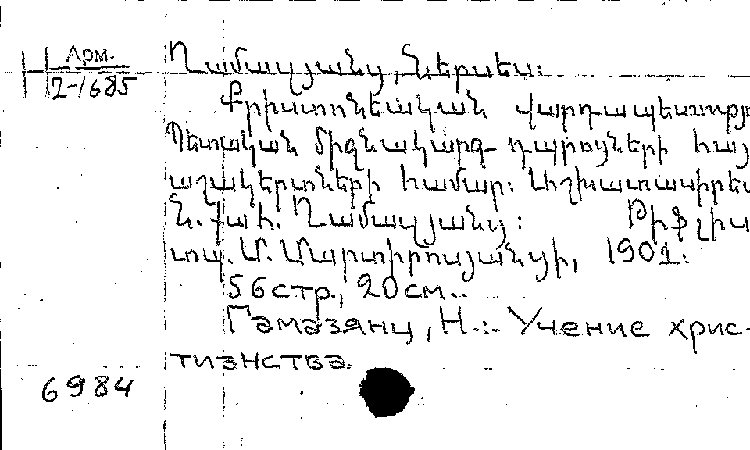 Арм.
2-1685
Ղամազյանց, Ներսես:
Քրիստոնեական վարդապետությ
Պետական միջնակարգ դպրոցների հայ
աշակերտների համար: Աշխատասիրեց
Ն. քահ. Ղամազյանց: Թիֆլիս
տպ. Մ. Մարտիրոսյանցի, 1901.
56 стр., 20 см..
Гамазянц, Н.: Учение хрис-
тианства.
6984